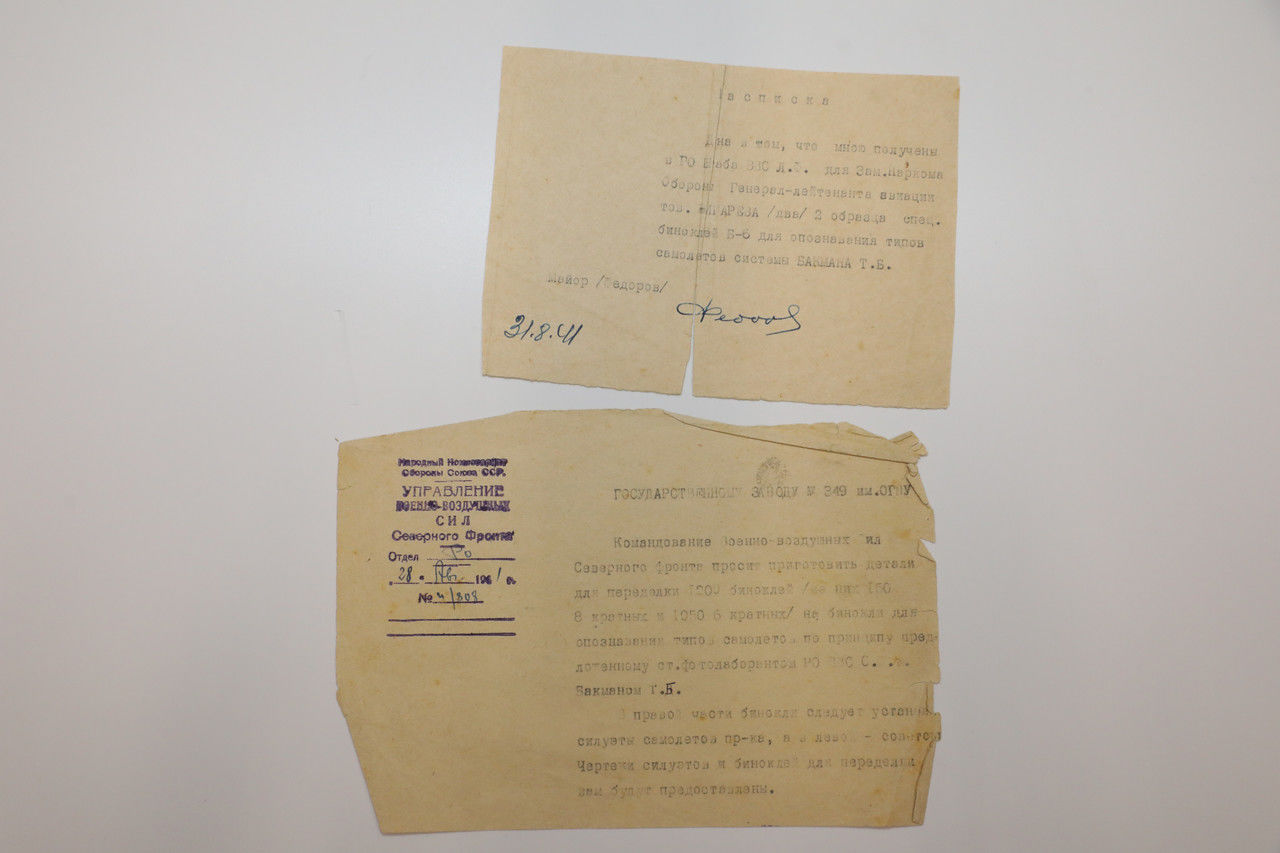 Расписка
Дна в том, что мною получены
в РО Штаба ВВС Л.Ф. для Зам.Наркома
Обороны Генерал-лейтенанта авиации
тов. ЖИГАРЕВА /два/ 2 образца спец.
биноклей Б-6 для опознавания типов
самолетов системы БАКМАНА Т.Б.
Майор /Федоров/
31.8.41
Народный Комиссариат
Обороны Союза ССР.
УПРАВЛЕНИЕ
ВОЕННО-ВОЗДУШНЫХ
СИЛ
Северного Фронта
Отдел РО
"28" Авг. 1941 г.
№ 4/808
ГОСУДАРСТВЕННОМУ ЗАВОДУ № 349 им.ОГПУ
Командование Военно-воздушных Сил
Северного фронта просит приготовить детали
для переделки 1200 биноклей /из них 150
8 кратных и 1050 6 кратных/ на бинокли для
опознавания типов самолетов по принципу пред-
ложенному ст.фотолаборантом РО ВВС С.Ф.
Бакманом Т.Б.
В правой части бинокля следует установ
силуэты самолетов пр-ка, а в левой - советск
Чертежи силуэтов и биноклей для переделки
вам будут предоставлены.